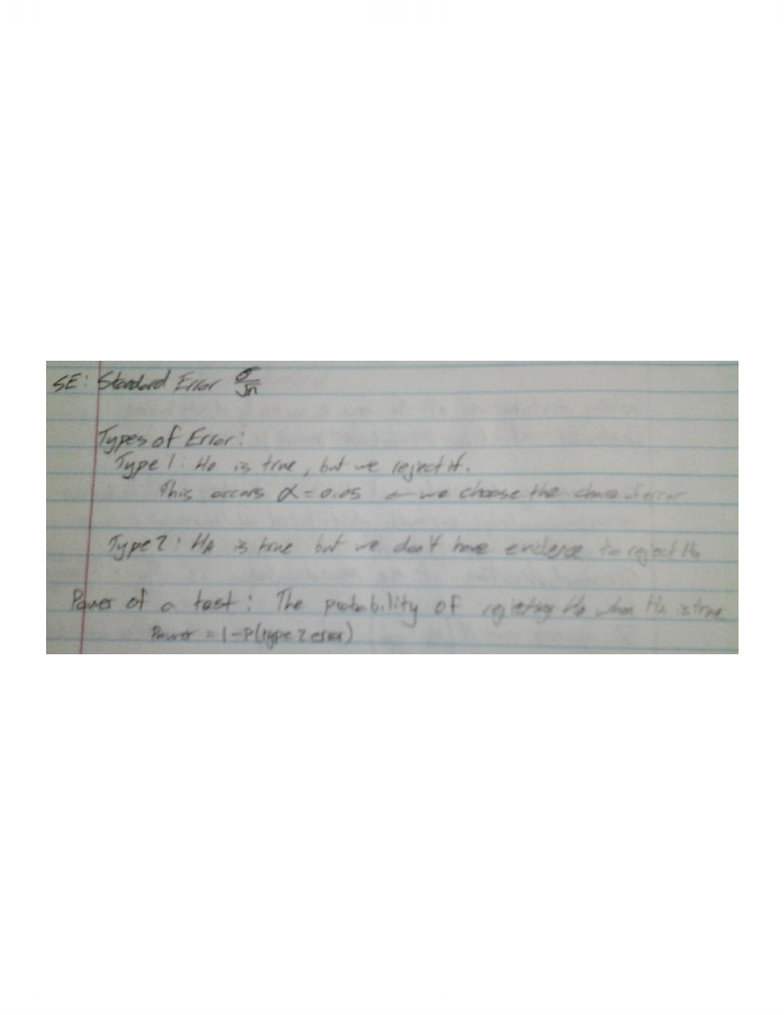 SE: Standard Error σ/√n
Types of Error:
Type 1: H₀ is true, but we reject it.
This occurs α = 0.05 ← we choose the chance of error
Type 2: Hₐ is true but we don't have evidence to reject H₀
Power of a test: The probability of rejecting H₀ when Hₐ is true
Power = 1-P(type 2 error)